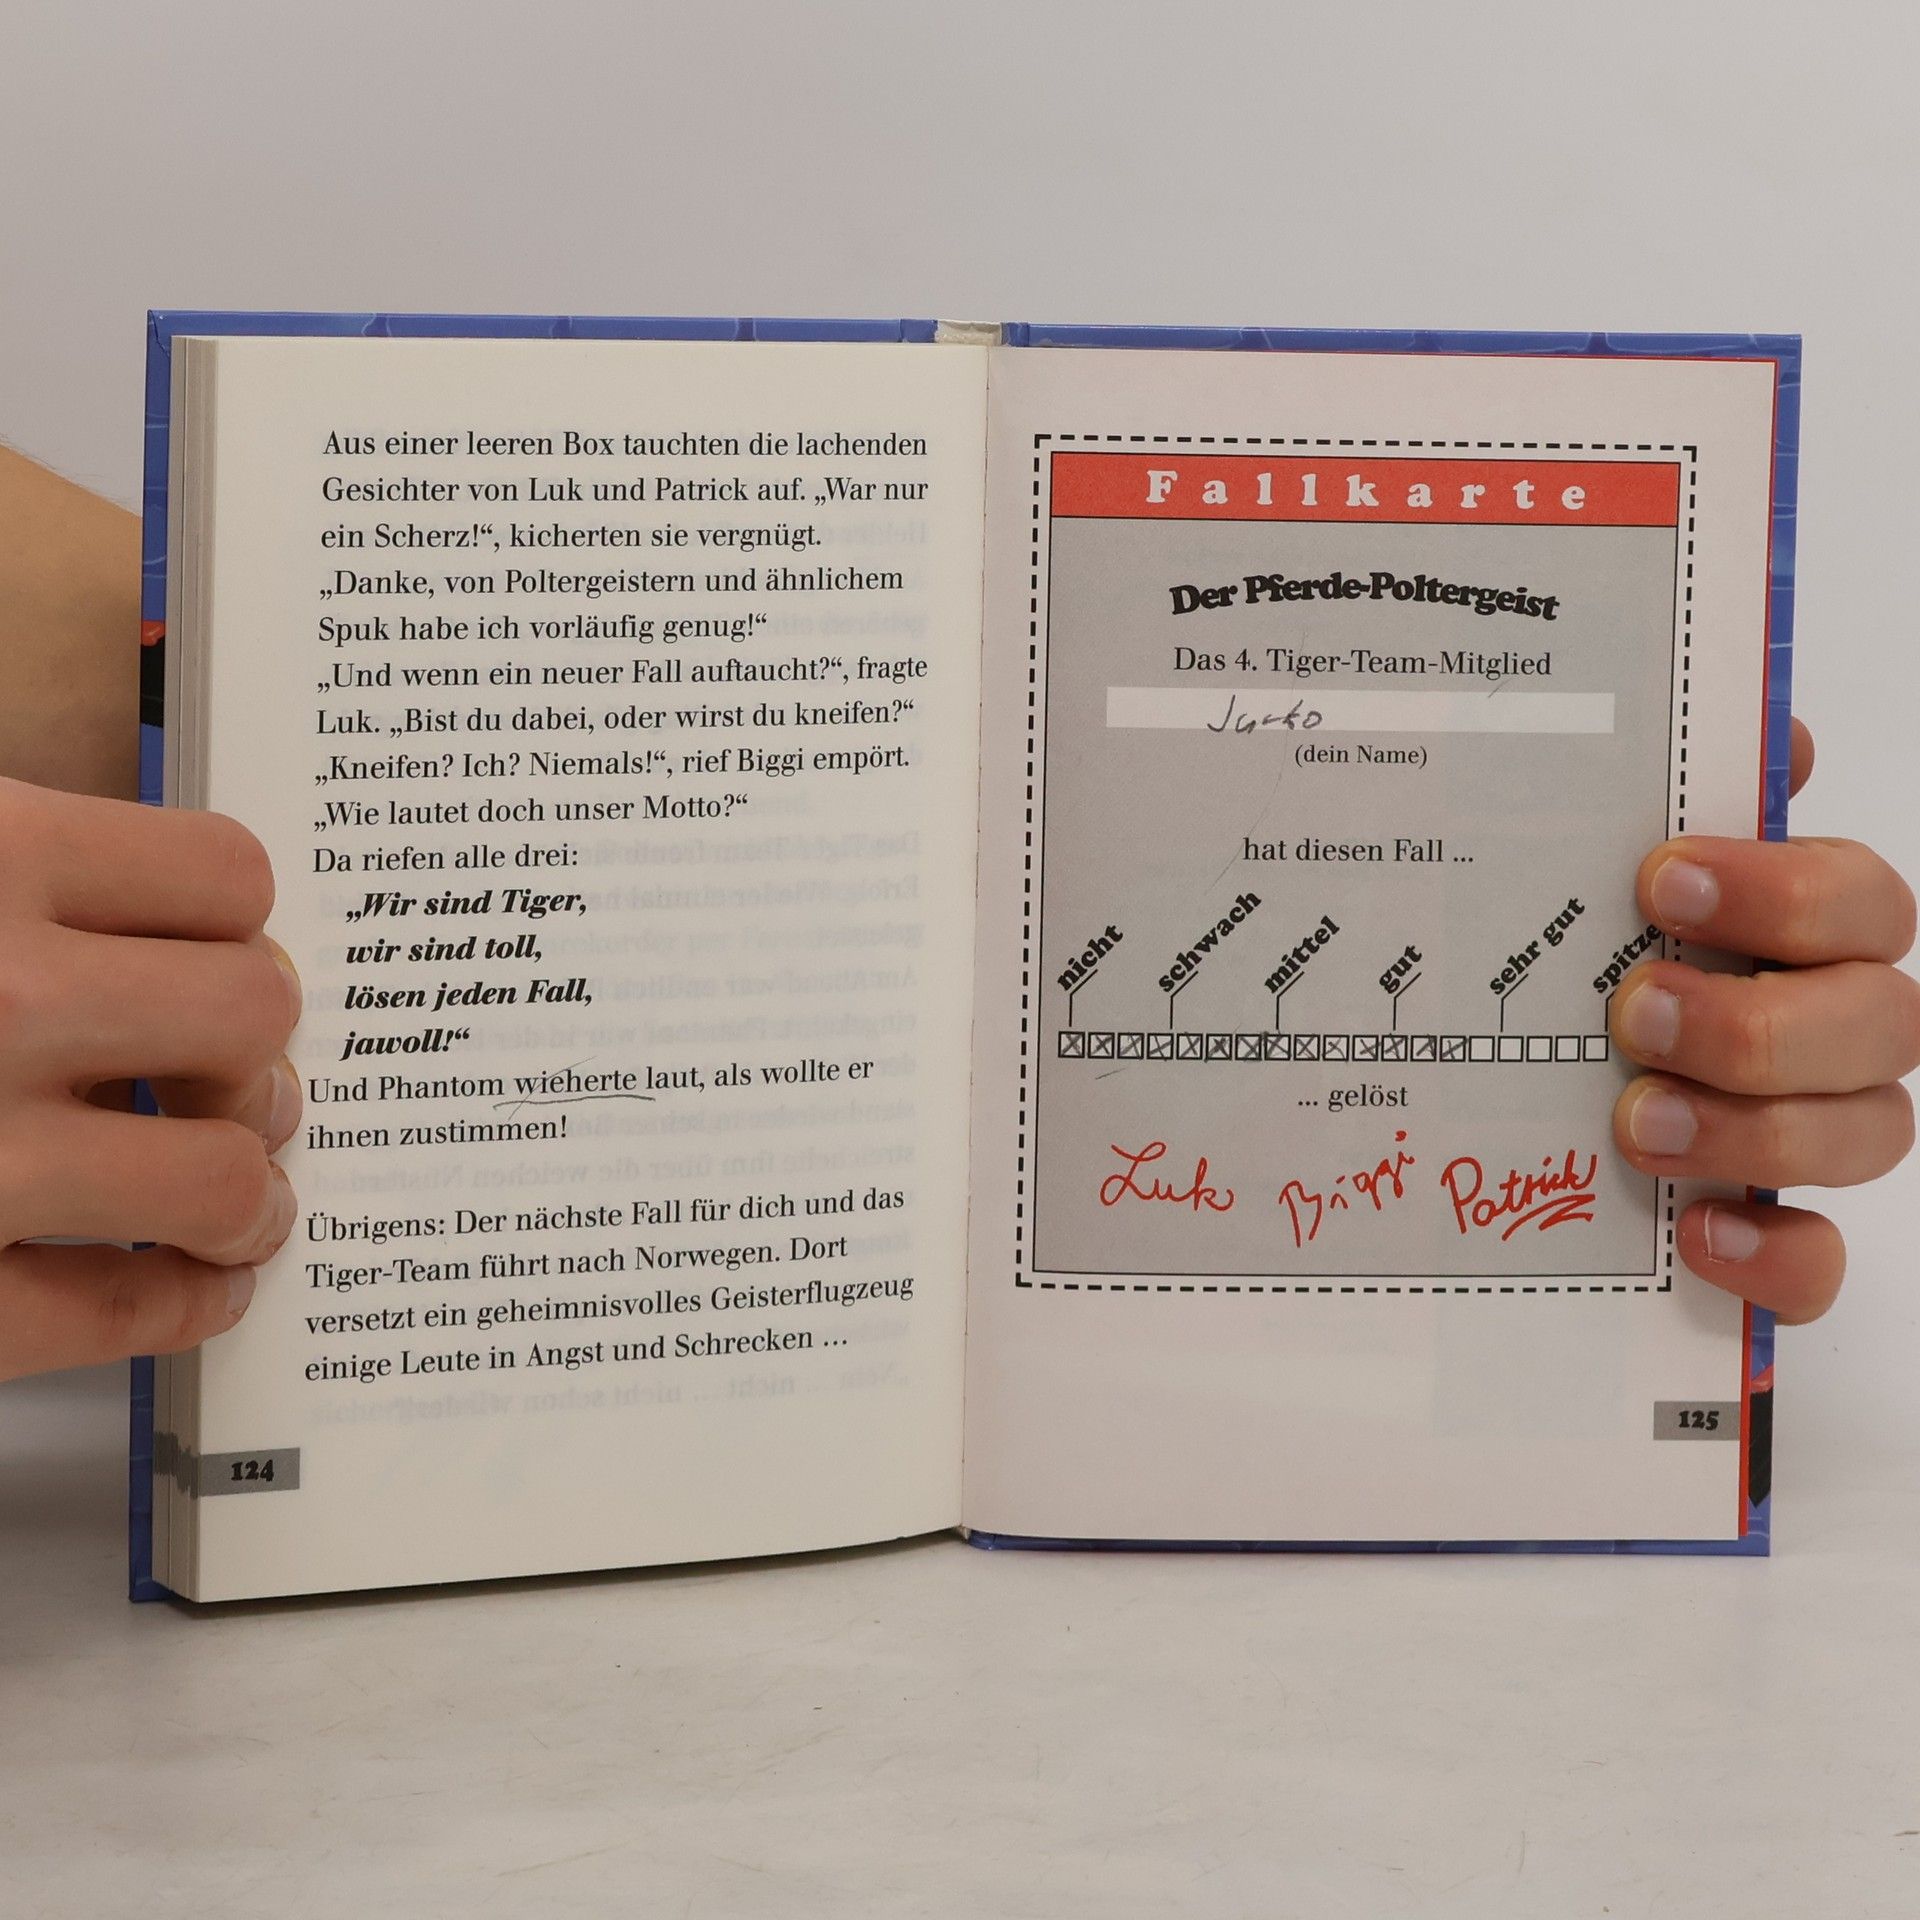 Aus einer leeren Box tauchten die lachenden
Gesichter von Luk und Patrick auf. „War nur
ein Scherz!“, kicherten sie vergnügt.
„Danke, von Poltergeistern und ähnlichem
Spuk habe ich vorläufig genug!“
„Und wenn ein neuer Fall auftaucht?“, fragte
Luk. „Bist du dabei, oder wirst du kneifen?“
„Kneifen? Ich? Niemals!“, rief Biggi empört.
„Wie lautet doch unser Motto?“
Da riefen alle drei:
„Wir sind Tiger,
wir sind toll,
lösen jeden Fall,
jawoll!“
Und Phantom wieherte laut, als wollte er
ihnen zustimmen!
Übrigens: Der nächste Fall für dich und das
Tiger-Team führt nach Norwegen. Dort
versetzt ein geheimnisvolles Geisterflugzeug
einige Leute in Angst und Schrecken ...
124
Fallkarte
Der Pferde-Poltergeist
Das 4. Tiger-Team-Mitglied
(dein Name)
hat diesen Fall ...
nicht schwach mittel gut sehr gut spitze
... gelöst
Luk Biggi Patrick
125